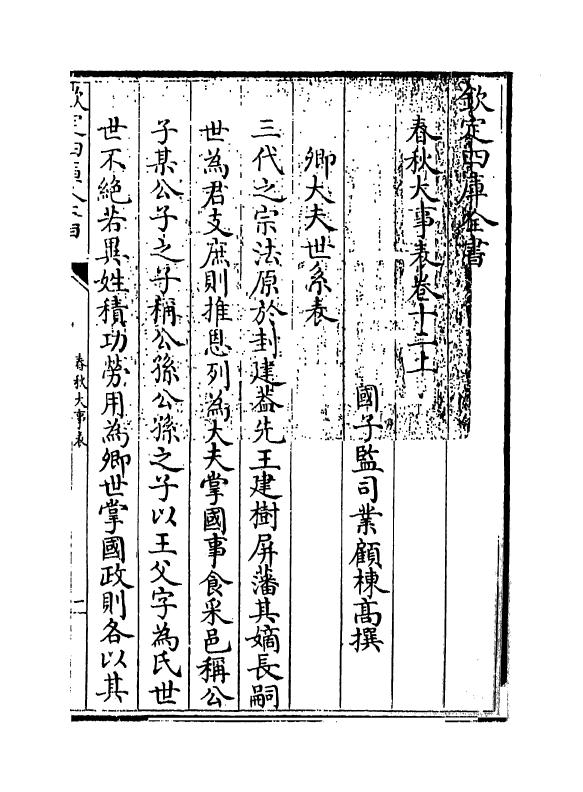 欽定四庫全書
春秋大事表卷十二上
國子監司業顧棟高撰
卿大夫世系表
三代之宗法原於封建葢先王建樹屏藩其嫡長嗣
世為君支庶則推恩列為大夫掌國事食采邑稱公
子某公子之子稱公孫公孫之子以王父字為氏世
世不絕若異姓積功勞用為卿世掌國政則各以其
春秋大事表